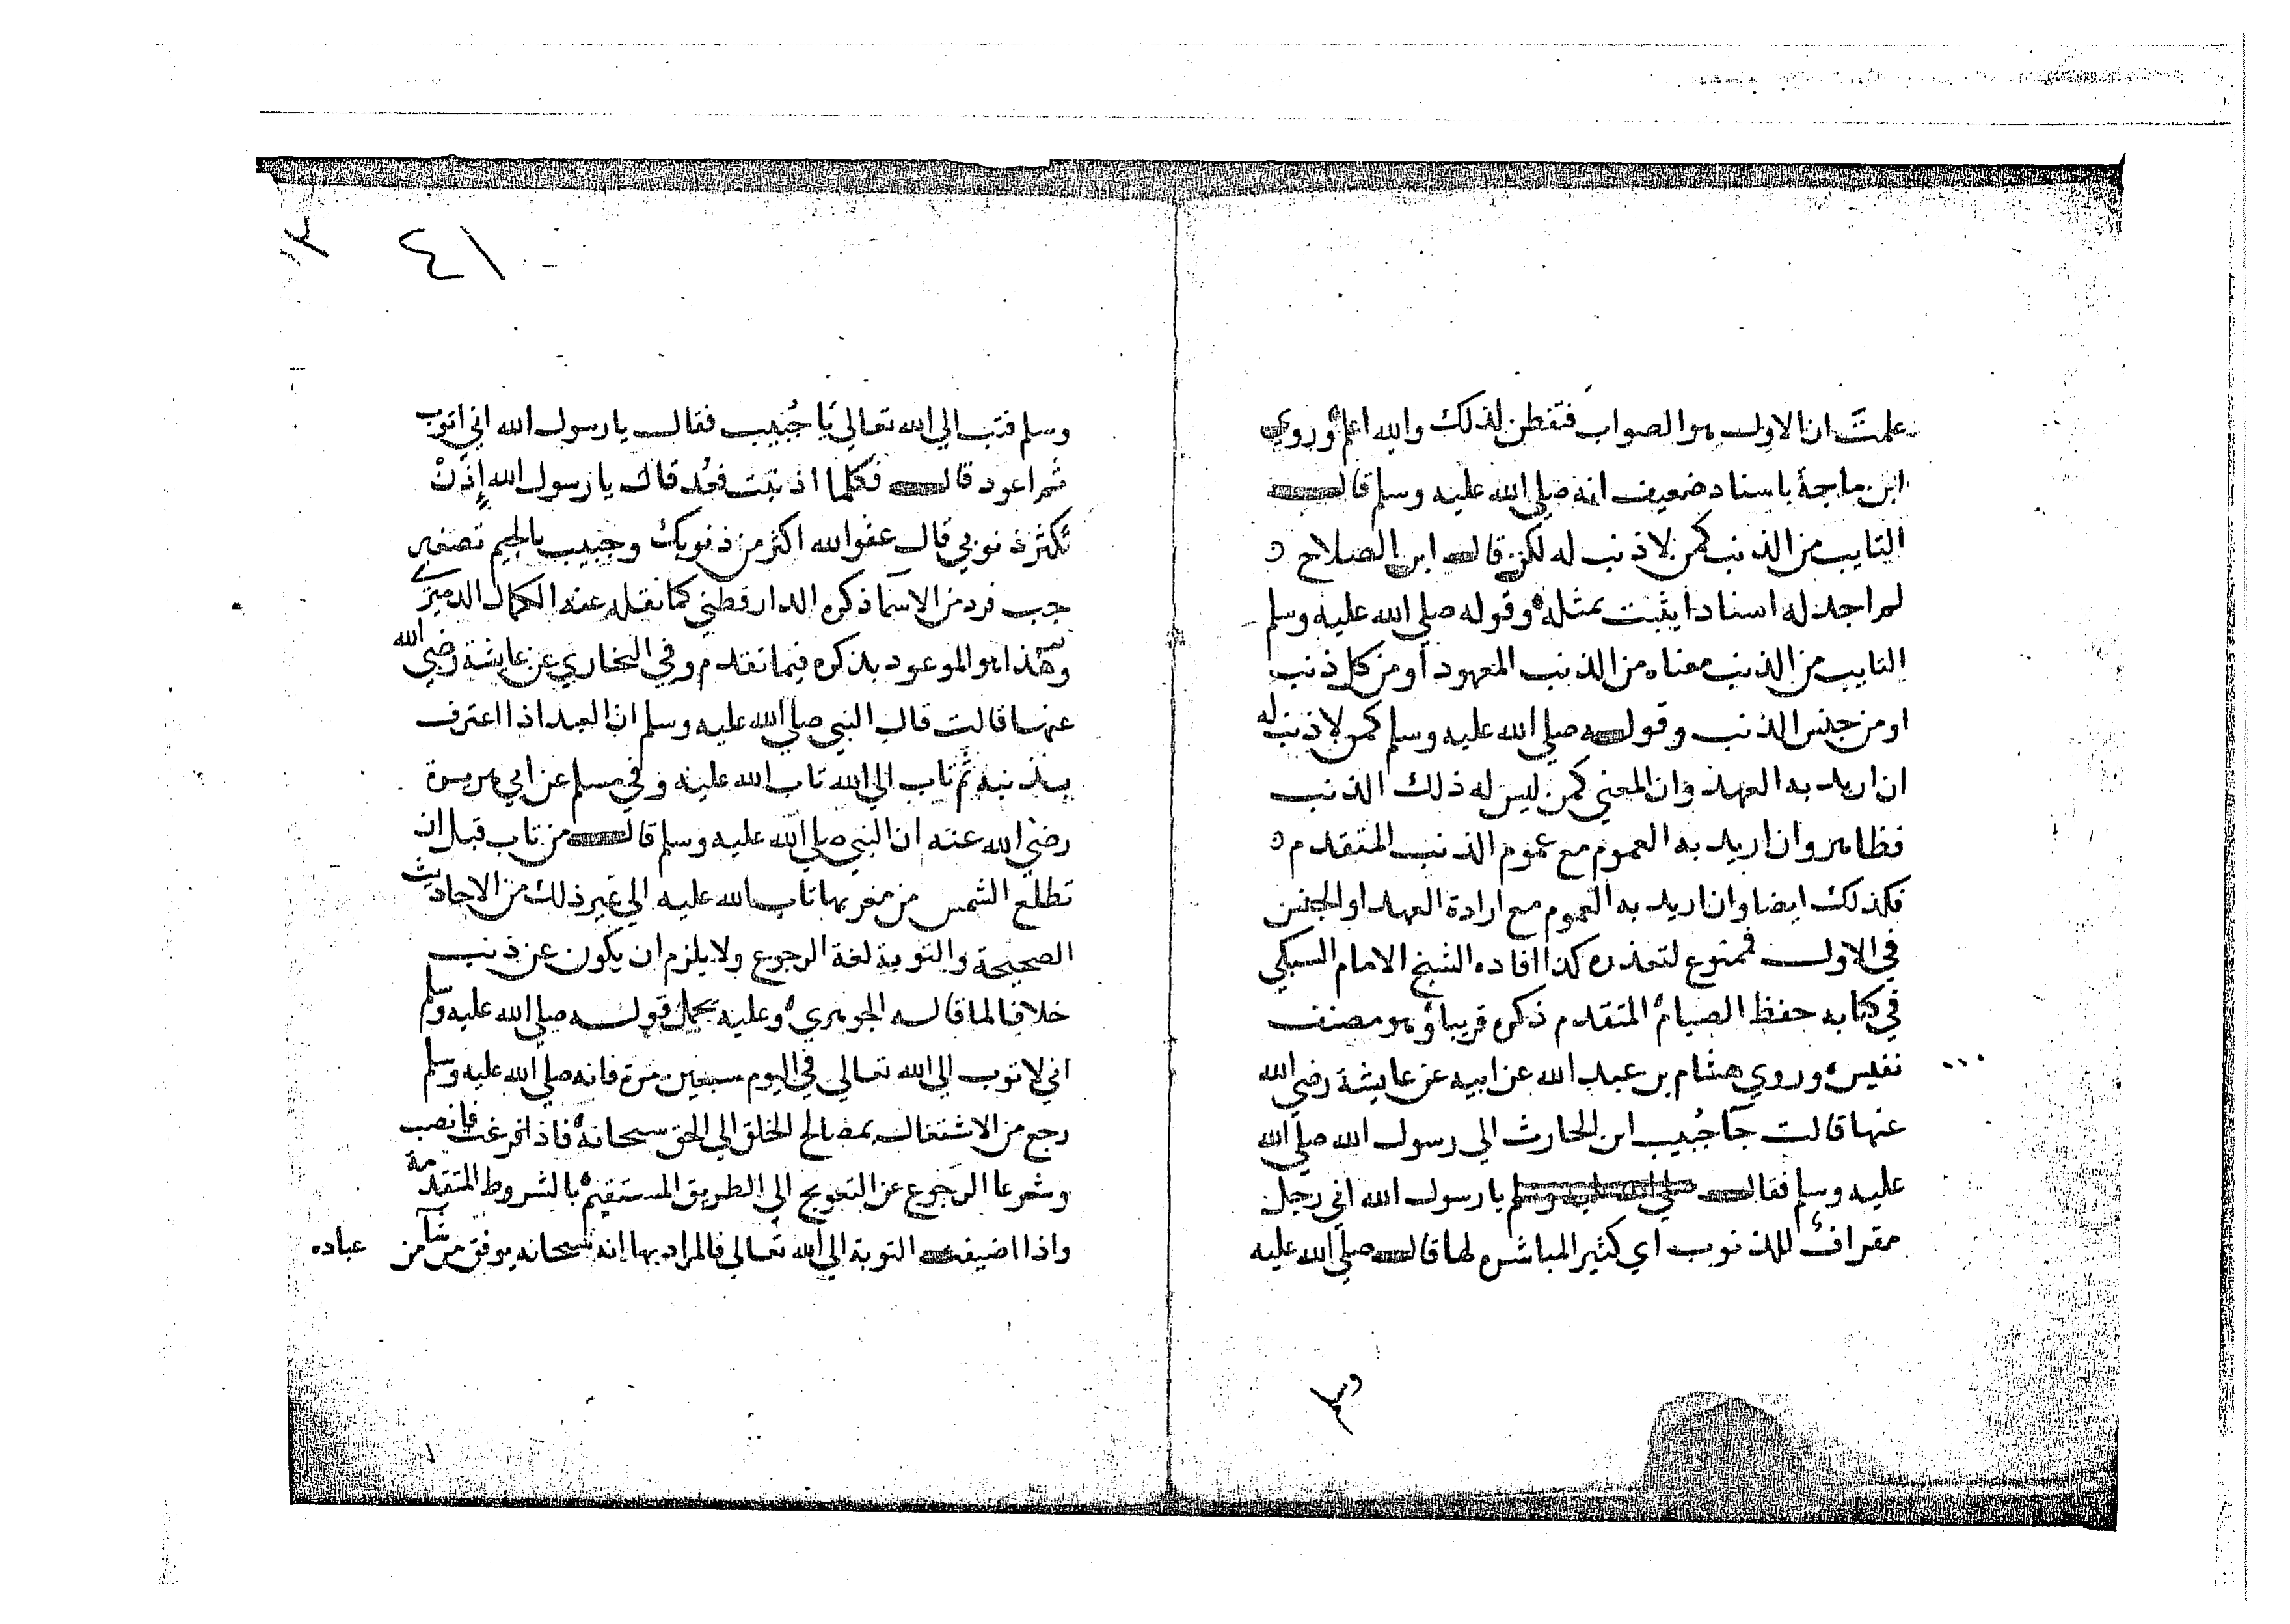 علمت ان الاول هو الصواب فتفطن لذلك والله اعلم وروي
ابن ماجة باسناد ضعيف انه صلي الله عليه وسلم قال
التايب من الذنب كمن لا ذنب له لكن قال ابن الصلاح
لم اجد له اسنادا يثبت بمثله وقوله صلي الله عليه وسلم
التايب من الذنب معناه من الذنب المعهود او من كل ذنب
او من جنس الذنب وقوله صلي الله عليه وسلم كمن لا ذنب له
ان اريد به العهد وان المعني كمن ليس له ذلك الذنب
فظاهر وان اريد به العموم مع عموم الذنب المتقدم
فكذلك ايضا وان اريد به العموم مع ارادة العهد او الجنس
في الاول فممنوع لتعذره كذا افاده الشيخ الامام السبكي
في كتابه حفظ الصيام المتقدم ذكره قريبا وهو مصنف
نفيس وروي هشام بن عبد الله عن ابيه عن عايشة رضي الله
عنها قالت جآ جُبيب ابن الحارث الي رسول الله صلي الله
عليه وسلم فقال صلي الله عليه وسلم يا رسول الله اني رجل
مقراف للذنوب اي كثير المباشره لها قال صلي الله عليه
وسلم
٤١
وسلم فتب الي الله تعالي يا جُبيب فقال يا رسول الله اني اتوب
ثم اعود قال فكلما اذنبت فعُد قال يا رسول الله إِذَنْ
تكثر ذنوبي قال عفو الله اكثر من ذنوبك وجبيب بالجيم تصغير
جب فرد من الاسما ذكره الدارقطني كما نقله عنه الكمال الدميري
وهذا هو الموعود بذكره فيما تقدم وفي البخاري عن عايشة رضي الله
عنها قالت قال النبي صلي الله عليه وسلم ان العبد اذا اعترف
بذنبه ثم تاب الي الله تاب الله عليه وفي مسلم عن ابي هريرة
رضي الله عنه ان النبي صلي الله عليه وسلم قال من تاب قبل ان
تطلع الشمس من مغربها تاب الله عليه الي غير ذلك من الاحاديث
الصحيحة والتوبة لغة الرجوع ولا يلزم ان يكون عن ذنب
خلافا لما قاله الجوهري وعليه يحمل قوله صلي الله عليه وسلم
اني لاتوب الي الله تعالي في اليوم سبعين مرة فانه صلي الله عليه وسلم
رجع من الاشتغال بمصالح الخلق الي الحق سبحانه فاذا فرغت فانصب
وشرعا الرجوع عن التعويج الي الطريق المستقيم بالشروط المتقدمة
واذا اضيفت التوبة الي الله تعالي فالمراد بها انه سبحانه يوفق من شآ من
عباده